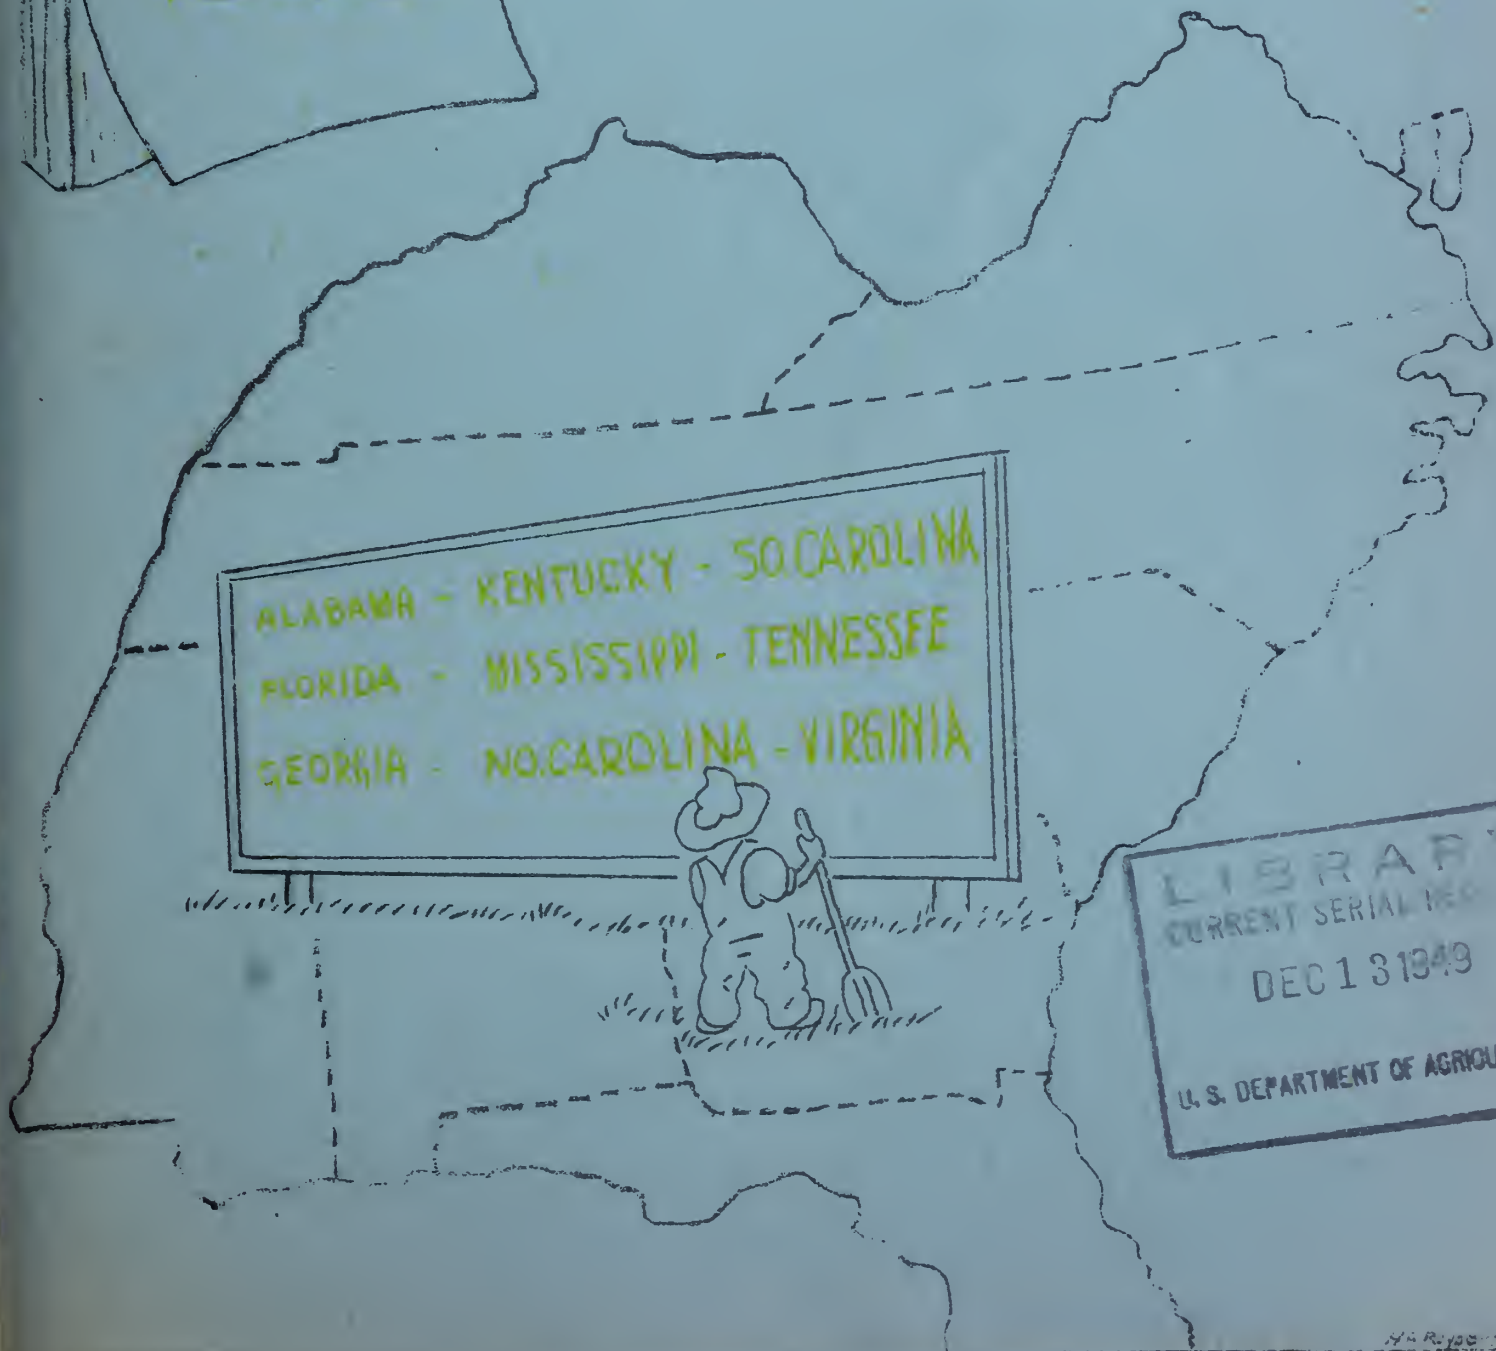 ALABAMA - KENTUCKY - SO.CAROLINA
FLORIDA - MISSISSIPPI - TENNESSEE
GEORGIA - NO.CAROLINA - VIRGINIA
LIBRAR
CURRENT SERIAL REC
DEC 13 1949
U. S. DEPARTMENT OF AGRICU